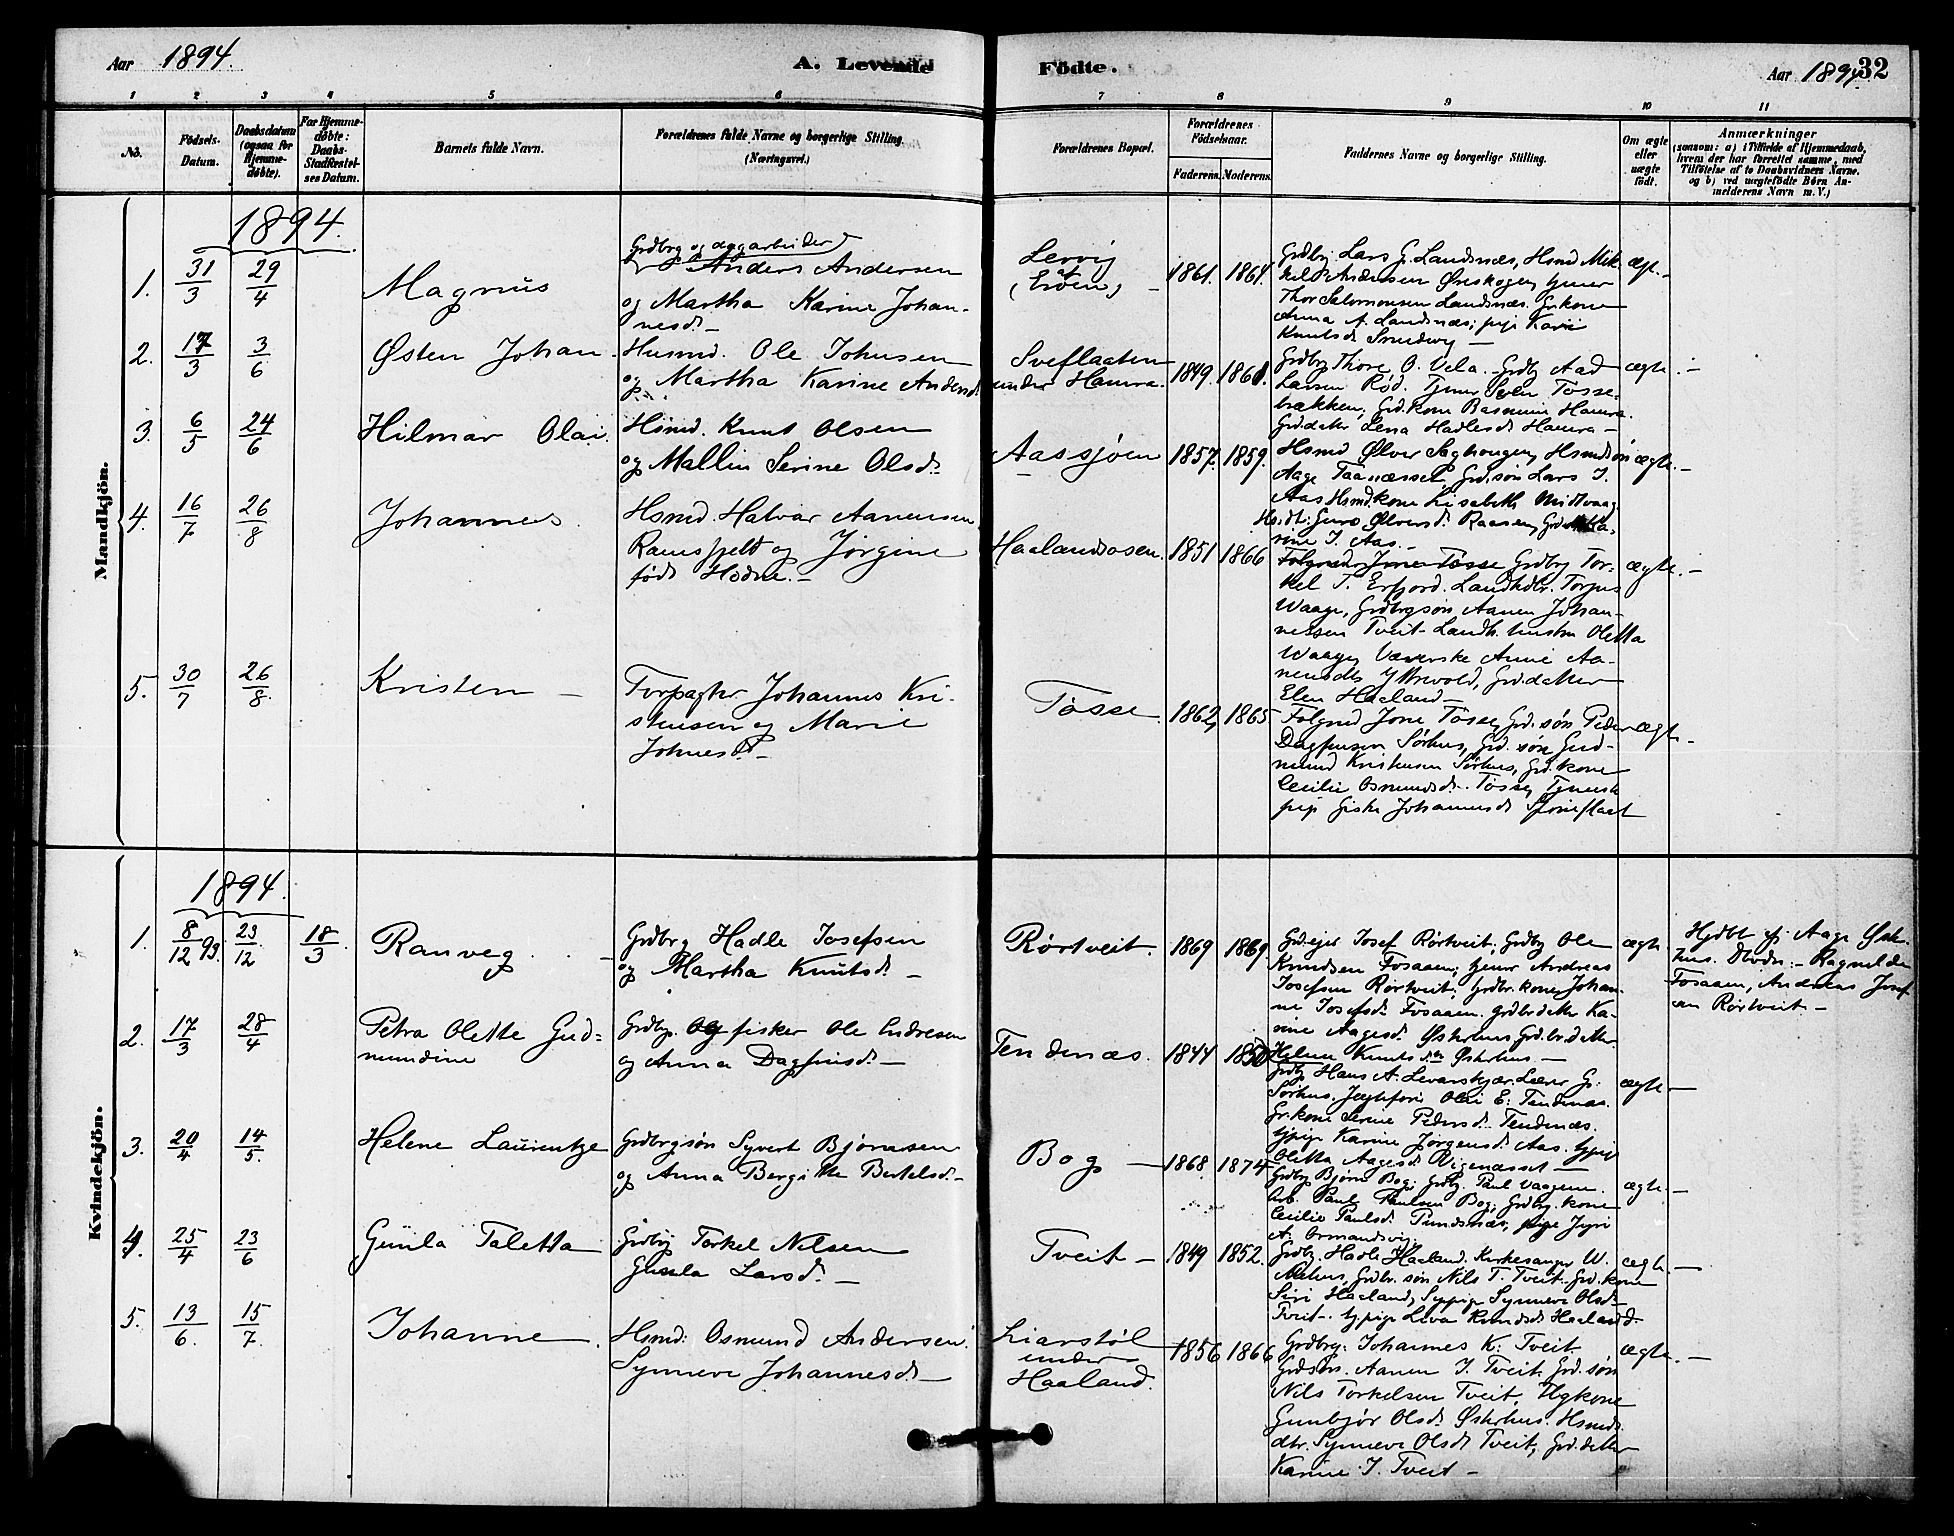 Aar 1894.
A. Levende Födte.
Aar 1894. 32
1 2 3 4 5 6 7 8 9 10 11
No.
Födsels-Datum.
Daabsdatum (ogsaa for Hjemmedöbte).
For Hjemmedöbte: Daabs-Stadfæstelses Datum.
Barnets fulde Navn.
Forældrenes fulde Navne og borgerlige Stilling. (Næringsvei.)
Forældrenes Bopæl.
Forældrenes Födselsaar.
Faderens. Moderens.
Faddernes Navne og borgerlige Stilling.
Om ægte eller uægte födt.
Anmærkninger (saasom: a) i Tilfælde af Hjemmedaab, hvem der har forrettet samme, med Tilföielse af to Daabsvidners Navne. og b) ved uægtefödte Börn Anmelderens Navn m. V.)
Mandkjön.
1894.
1. 31/3 29/4 Magnus
Grdbrg og dagarbeider
Anders Andersen
og Martha Karine Johan-
nesd. –
Lervig
1861. 1864.
Grdbg. Lars G. Landsnæs, Hsmd Mik-
kel Andersen Øreskogen, tjener
Thor Salomonsen Landsnæs. Gr.kone
Anna A. Landsnæs; pige Kari
Knutsd.
ægt. –
2. 17/3 3/6 Østen Johan
Husmd. Ole Johnsen
og Martha Karine Andersd.
Sveflaaten
under Hamra.
1849. 1861.
Grdbg Thore O. Vela. Grdbg Aad
Larsen Rød. Tjener Sven Tøsse-
bækken, Grd.kone Rasmine Hamra.
Grd.datter Lena Hadlesd. Hamra –
ægte. –
3. 6/5 24/6 Hilmar Olai.
Hsmd. Knut Olsen
og Mallin Serine Olsd.
Aassjøen
1857. 1859.
Hsmd Ølver Saghougen, Hsmdsøn
Aage Taanæsset, Grd.søn Lars I.
Aas Hsmdkone Lisabeth Midtvaag
Guro Ølversd. Raasen,
rine I. Aas. –
ægte. –
4. 16/7 26/8 Johannes.
Hsmd. Halvar Aanensen
Ramsfjeld og Jørgine
født Hodne. –
Haalandsosen.
1851 1866
Folgemd Jone Tøsse Grdbrg Tor-
kel T. Erfjord. Landhdlr. Torger
Waage, Grdbrgsøn Aanen Johan-
nessen Tveit – Landh. hustru Oletta
Waage, Væverske Anne Aa-
nensdtr Ytrevold, Grd.datter
Elen Haaland –
ægte. –
5. 30/7 26/8 Kristen –
Forpagter Johannes Kri-
stensen og Marie
Johnesd. –
Tøsse.
1862, 1865
Folgmd Jone Tøsse, Grd.søn Peder
Dagfinsen Sørhus, Grd.søn Gud-
mund Kristensen Sørhus, Grd.kone
Cecilie Osmundsd. Tøsse, Tjeneste
pige Giske Johannesd. Steineflaat
ægte –
Kvindekjön.
1894.
1. 8/12 93. 23/12 18/3 Ranveg.
Grdbrg Hadle Josefsen
og Martha Knutsd. –
Rørtveit.
1869 1869
Grd.ejer Josef Rørtveit; Grdbg Ole
Knudsen Fosaaen; tjener Andreas
Josefsen Rørtveit; Grdbr.kone Johan-
ne Josefsd. Fosaaen. grdbrdatter Ka-
rine Aagesd. Østerhus Grd.br.datter
Helene Knutsdtr Østerhus. –
ægte
Hjdbt af Aage Øster-
hus. Dbvdn: – Ragnilda
Fosaaen, Andreas Josef-
sen Rørtveit –
2. 17/3 28/4 Petra Olette Gud-
mundine
Grdbg. Og fisker Ole Endresen
og Anna Dagfinsd. –
Tendenæs.
1844 1850
Grdbg Hans A. Levarskjær. Lærer G.
Sørhus, Jægtefører Olai E. Tendenæs.
Gr.kone Serine Pedersd. Tendenæs.
tjpige Karine Jørgensd. Aas. tjpige
Oletta Aagesd. Vigenæsset –
ægte –
3. 20/4 14/5. Helene Laurentze
Grdbrgsøn Syvert Bjørnsen
og Anna Bergitte Bertelsd. –
Bog –
1868 1874
Grdbg Bjørn Bog; Grdbg. Paul Vaagene.
Arb. Paul Paulsen Bog, Grdbg.kone
Cecilie Paulsd. Tundsnæs, pige Jyri
A. Ormandsvig.
ægte. –
4 25/4 23/6 Gunla Taletta
Grdbg Torkel Nilsen
Gunla Larsd. –
Tveit –
1849 1852.
Grdbg. Hadle Haaland. Kirkesanger W.
Mæhus, Grdbr.søn Nils T. Tveit. Grd.kone
Siri Haaland, Sypige Synneve Olsd.
Tveit – tjpige Liva Knudsd. Haaland
ægte. –
5. 13/6. 15/7. Johanne.
Hsmd: Osmund Andersen
Synneve Johannesd. –
Liarstøl
under
Haaland.
1856 1866
Grdbrg. Johannes K. Tveit
Grdsøn. Aanen J. Tveit, Grd.søn
Nils Torkelsen Tveit, Hgkone
Gunbjør Olsd. Østerhus. Hsmds
dtr. Synneve Olsd. Tveit, Grd.datter
Karine J. Tveit –
ægte. –